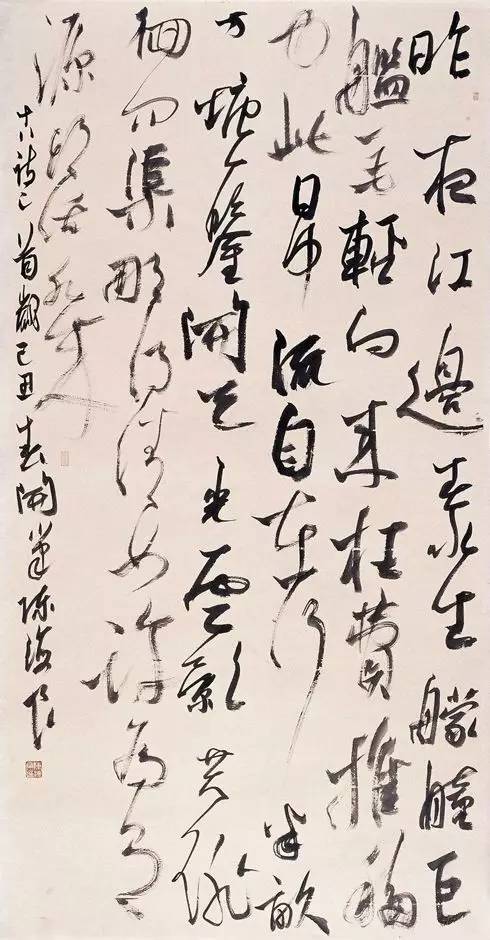 昨夜江邊春水生艨艟巨
艦一毛輕向来枉費推移
力此日中流自在行半畝
方塘一鑒開天光雲影共徘
徊问渠那得清如許為有
源頭活水来
诗二首歲己丑春開筆陳海良